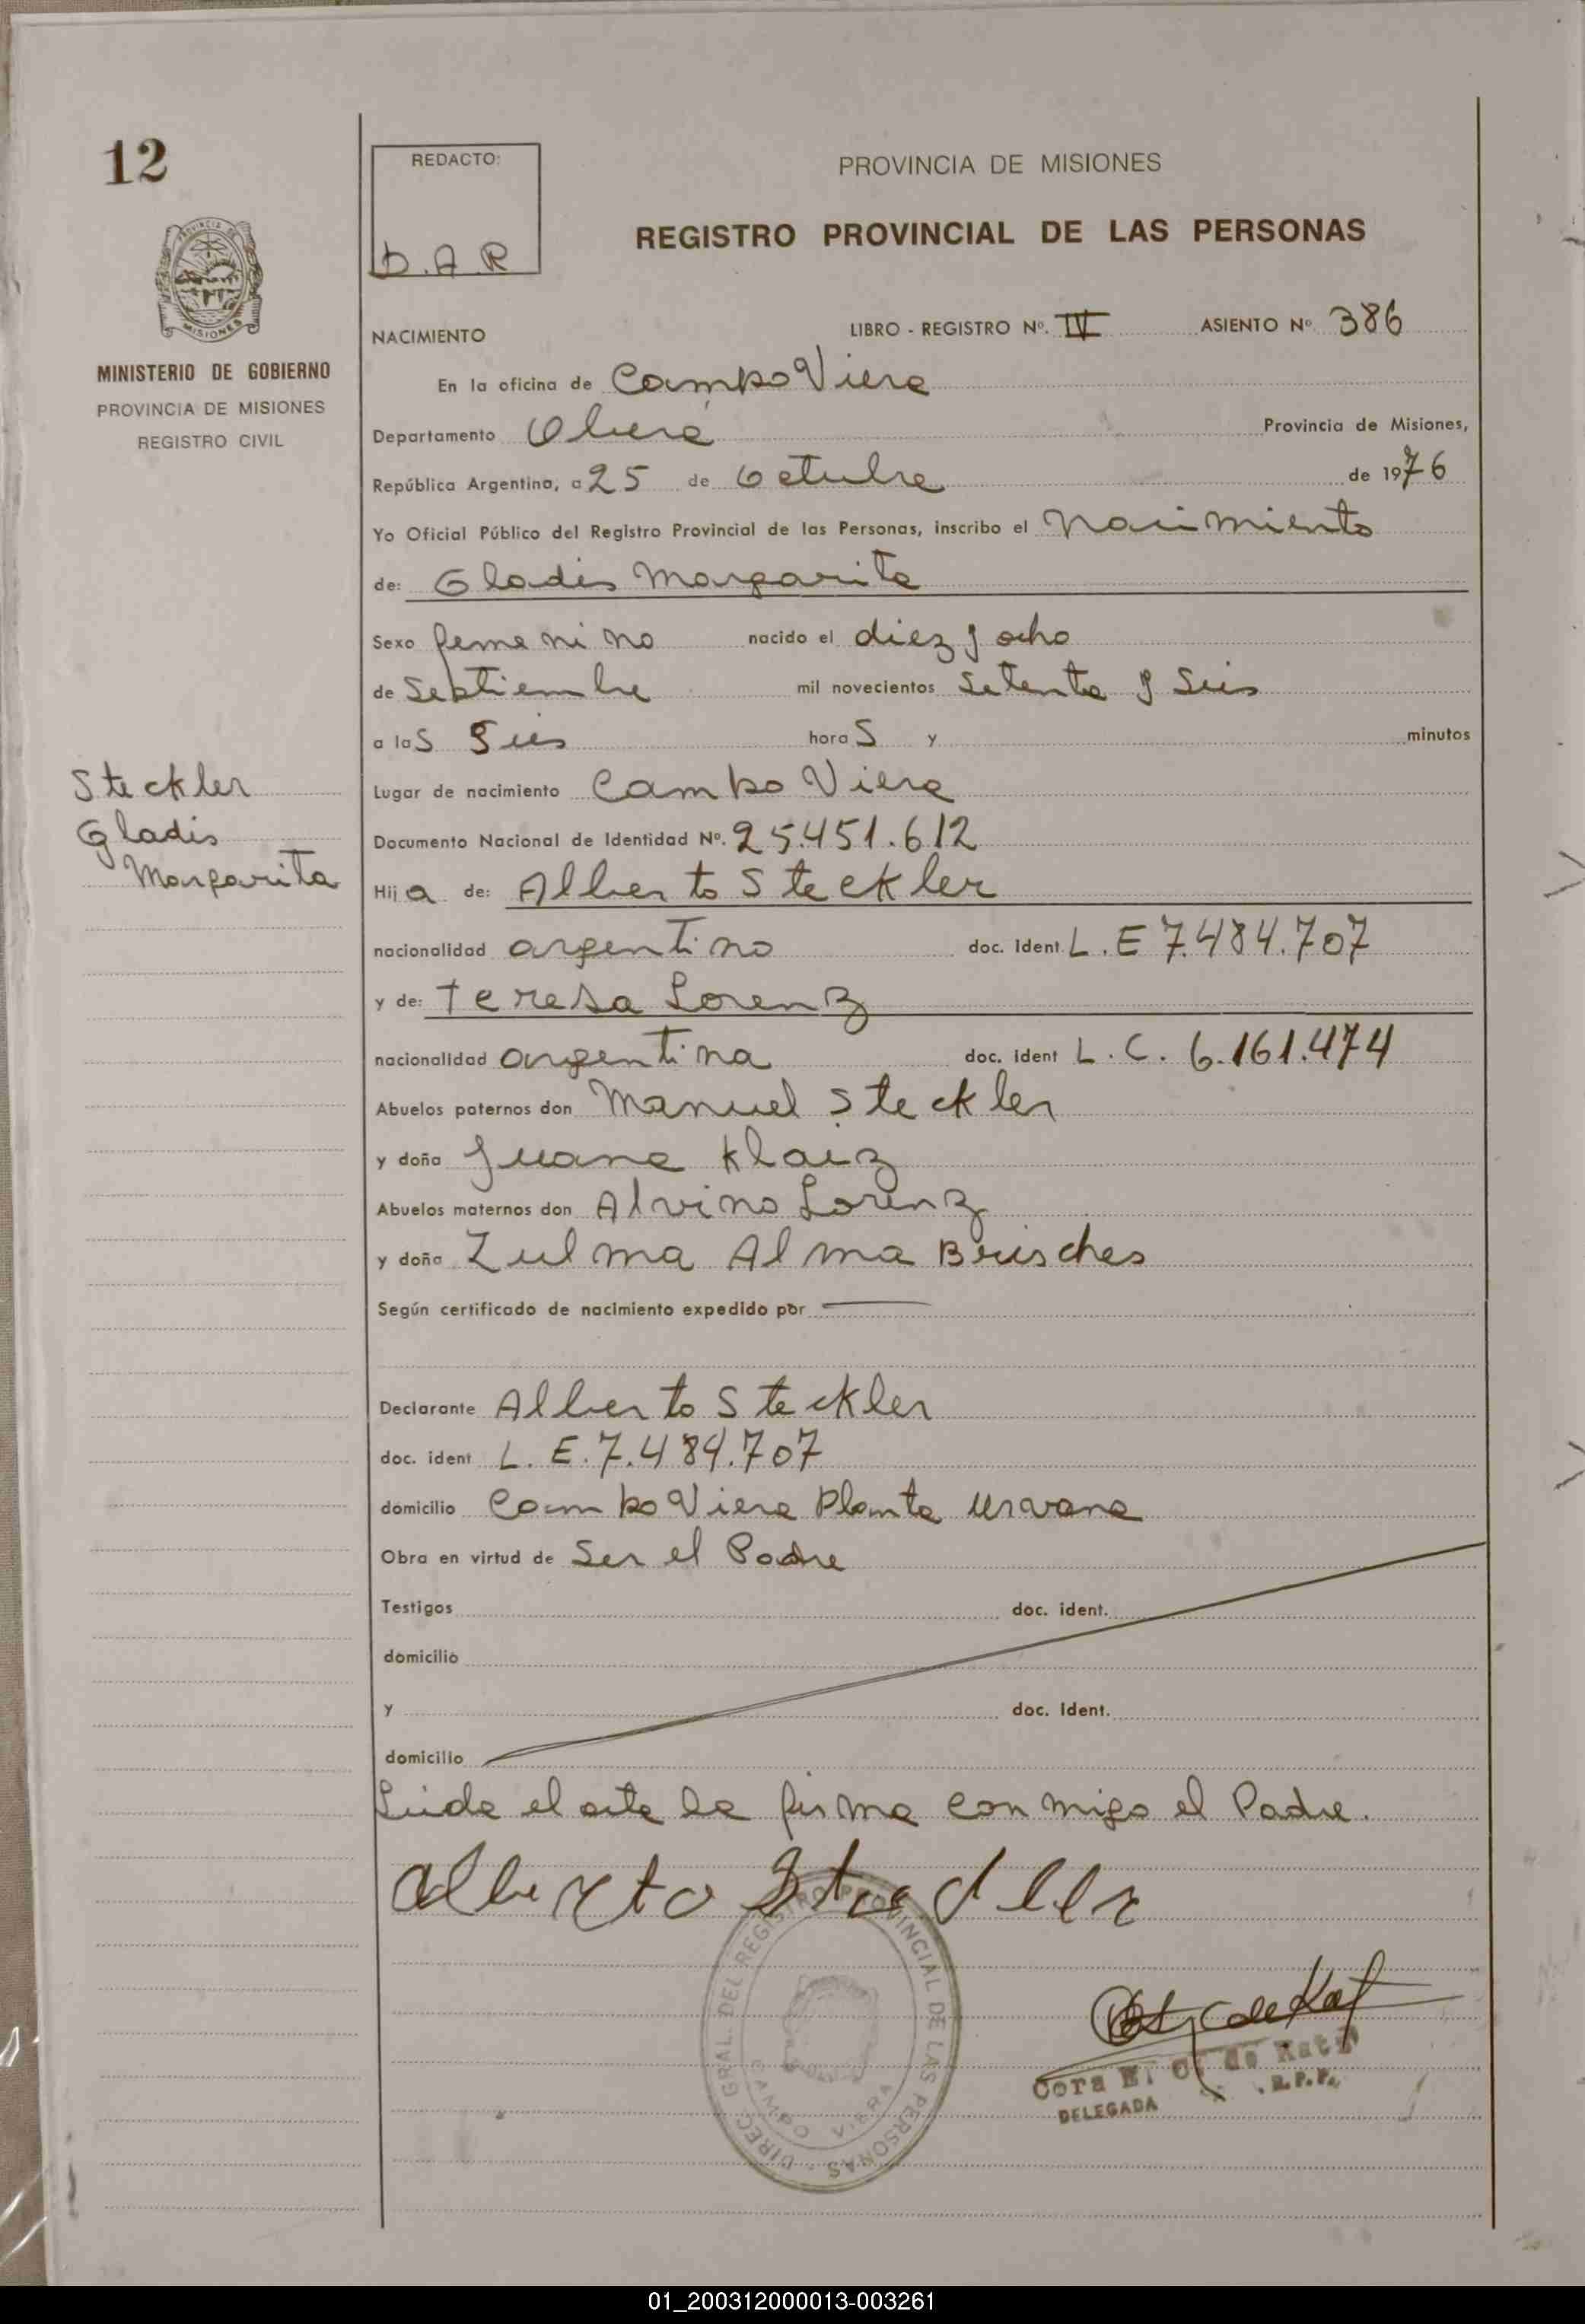 12
REDACTO:
D.A.R
PROVINCIA DE MISIONES
REGISTRO PROVINCIAL DE LAS PERSONAS
MISIONES
MINISTERIO DE GOBIERNO
PROVINCIA DE MISIONES
REGISTRO CIVIL
NACIMIENTO LIBRO - REGISTRO Nº. IV ASIENTO Nº 386
En la oficina de Campo Viera
Departamento Oberá Provincia de Misiones,
República Argentina, a 25 de Octubre de 1976
Yo Oficial Público del Registro Provincial de las Personas, inscribo el Nacimiento
de: Gladis Margarita
Sexo femenino nacido el diez y ocho
de Septiembre mil novecientos Setenta y Seis
a las Seis horas y minutos
Steckler
Gladis
Margarita
Lugar de nacimiento Campo Viera
Documento Nacional de Identidad Nº. 25.451.612
Hija de: Alberto Steckler
nacionalidad argentino doc. ident. L.E 7.484.707
y de: Teresa Lorenz
nacionalidad argentina doc. ident L.C. 6.161.474
Abuelos paternos don Manuel Steckler
y doña Juana Klaiz
Abuelos maternos don Alvino Lorenz
y doña Zulma Alma Brisches
Según certificado de nacimiento expedido por
Declarante Alberto Steckler
doc. ident L.E. 7.484.707
domicilio Campo Viera Planta Urvana
Obra en virtud de Ser el Padre
Testigos doc. ident.
domicilio
y doc. ident.
domicilio
Leida el acta la firma con migo el Padre.
Alberto Steckler
DIREC. GRAL. DEL REGISTRO PROVINCIAL DE LAS PERSONAS
CAMPO VIERA
Cora E. C. de Katz
DELEGADA R.P.P.
01_200312000013-003261